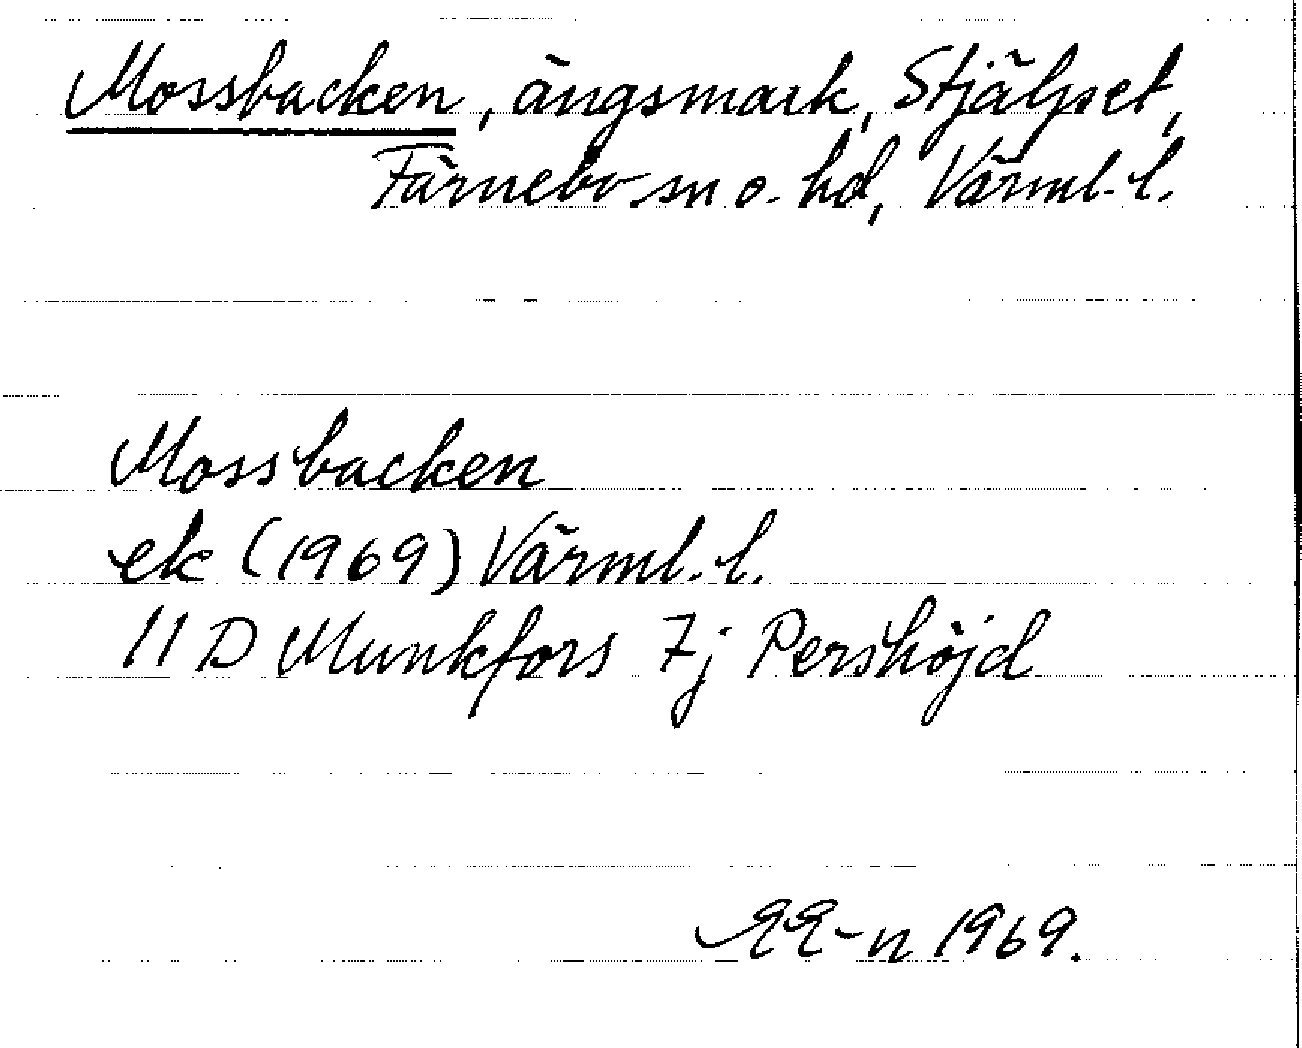 Mossbacken, ängsmark, Stjälpet,
Färnebo sn o. hd, Värml. l.
Mossbacken
ek (1969) Värml. l.
11 D Munkfors 7j Pershöjd
EE-n 1969.